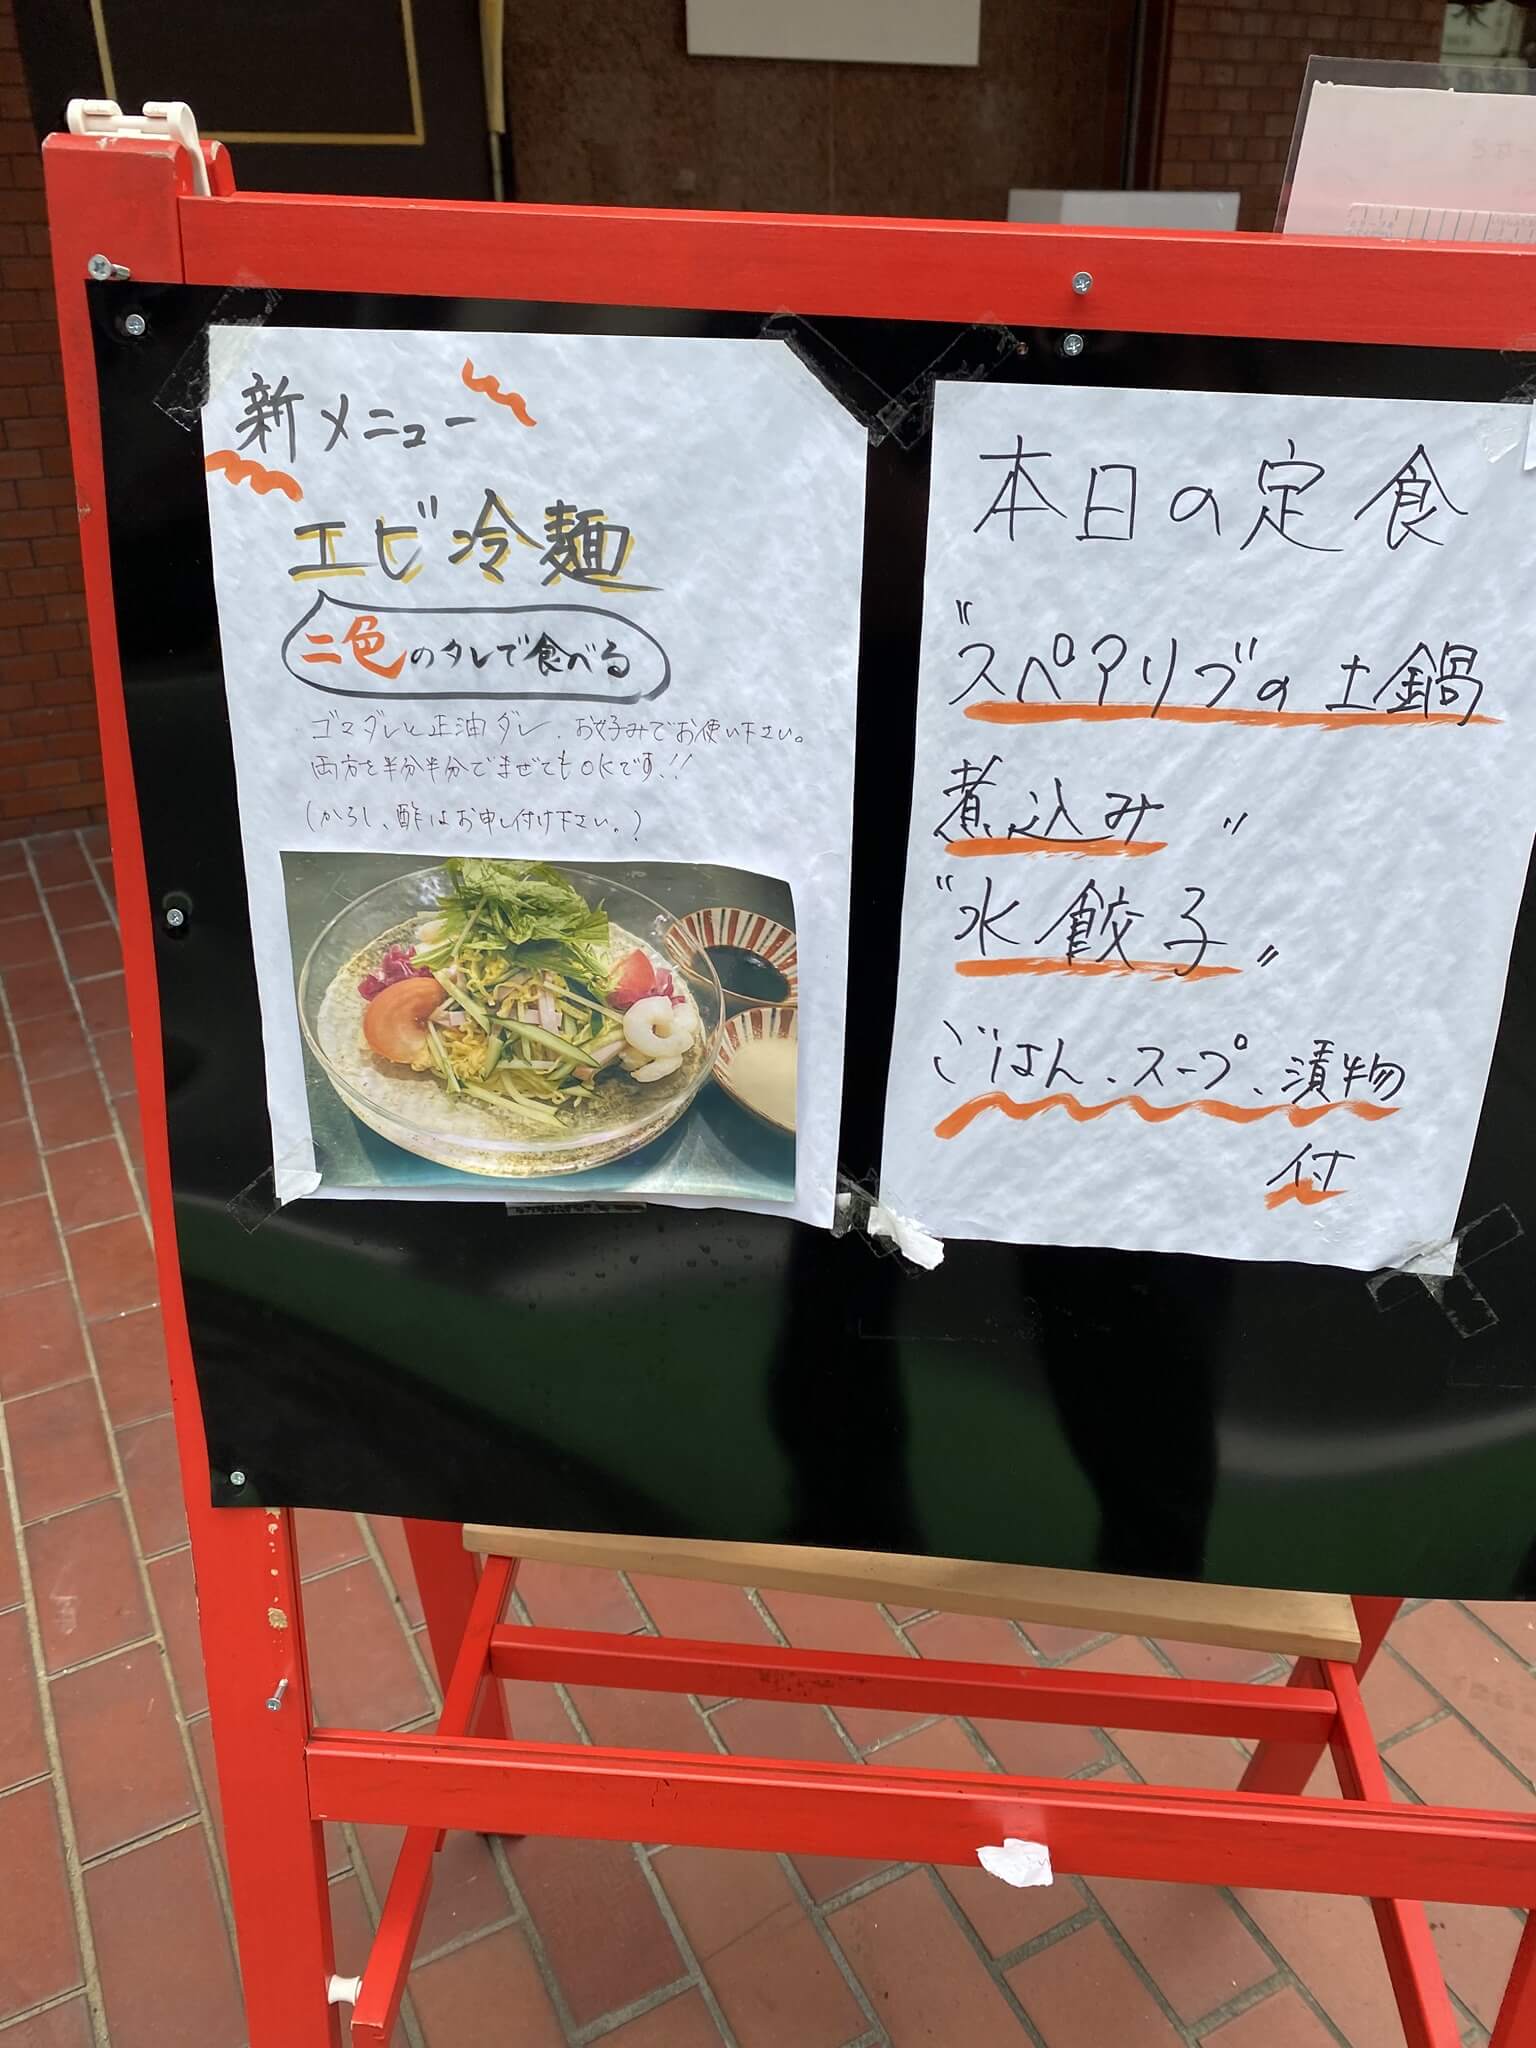 新メニュー
エビ冷麺
二色のタレで食べる
ゴマダレと正油ダレ、お好みでお使い下さい。
両方を半分半分でまぜてもOKです!!
(からし、酢はお申し付け下さい。)
本日の定食
"スペアリブの土鍋
煮込み"
"水餃子"
ごはん、スープ、漬物
付